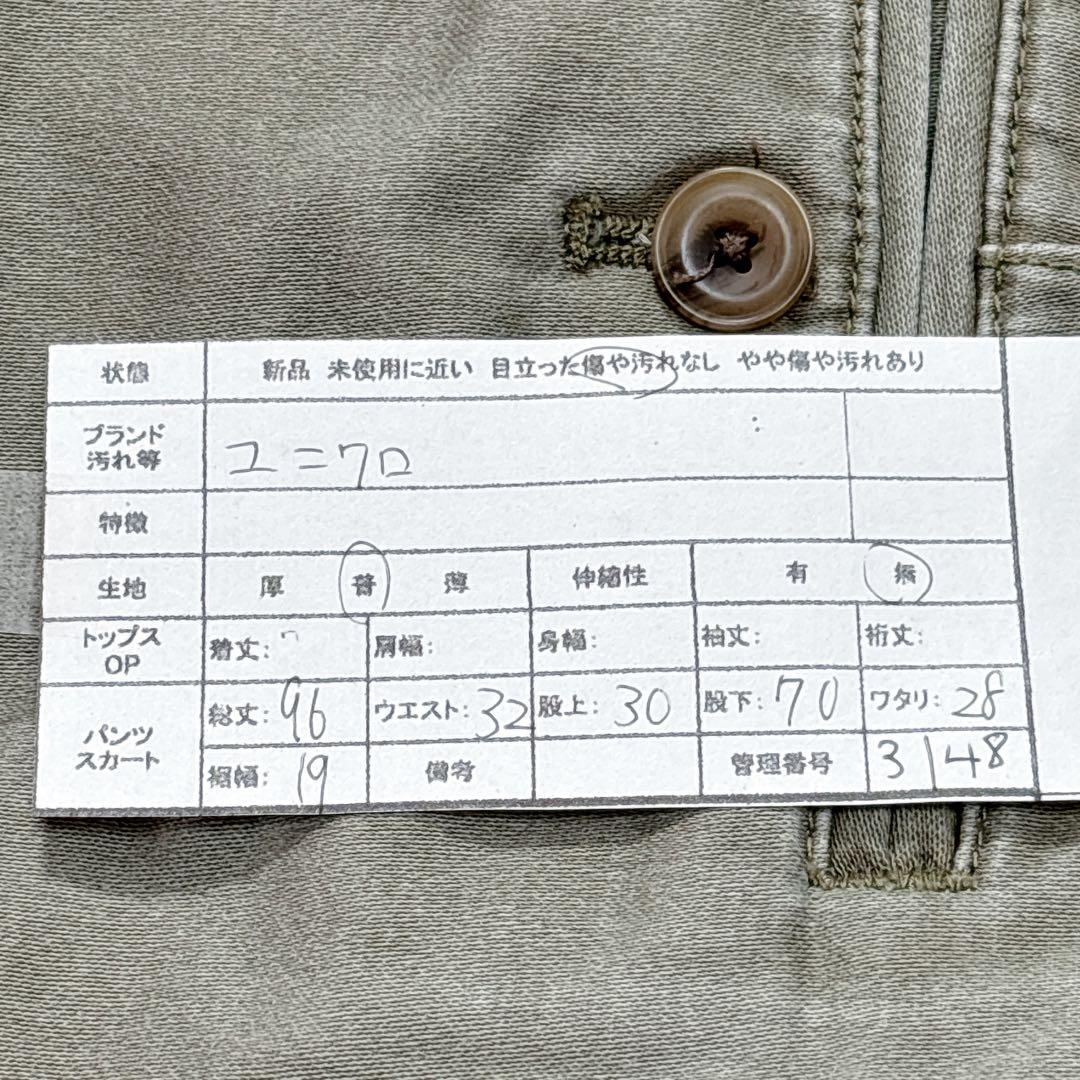 状態 新品 未使用に近い 目立った傷や汚れなし やや傷や汚れあり
ブランド
汚れ等
ユニクロ
特徴
生地 厚 普 薄 伸縮性 有 無
トップス
OP
着丈: 肩幅: 身幅: 袖丈: 裄丈:
パンツ
スカート
総丈: 96 ウエスト: 32 股上: 30 股下: 70 ワタリ: 28
裾幅: 19 備考 管理番号 3148